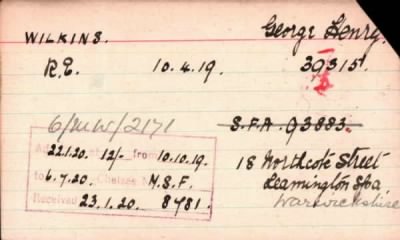 WILKINS. George Henry.
R.E. 10.4.19. 39315.
6/MW/2171 S.F.A. 93883.
22.1.20. 12/- from 10.10.19. 18 Northcote Street
to 6.7.20 Chelsea N.S.F. Leamington Spa.
Received 23.1.20. 8981. Warwickshire